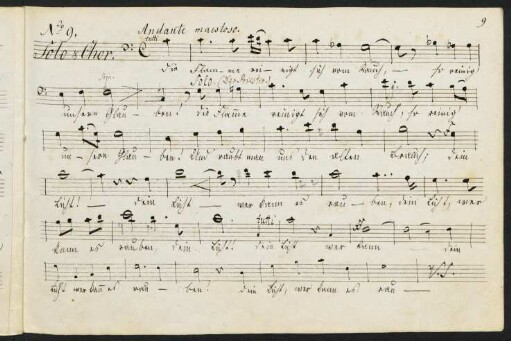 9
No 9. Andante maestoso.
Solo & Chor. tutti
Die Flamme reinigt sich vom Rauch, — so reinig'
Solo (Der Priester)
unsern Glauben! die Flamme reinigt sich vom Rauch, so reinig'
unsern Glauben. Und raubt man uns den alten Brauch; dein
Licht! — dein Licht — wer kann es rauben, dein Licht, wer
tutti
kann es rauben, dein Licht! dein Licht wer kann dein
Licht wer kann es rauben! dein Licht, wer kann es rau —
V.S.